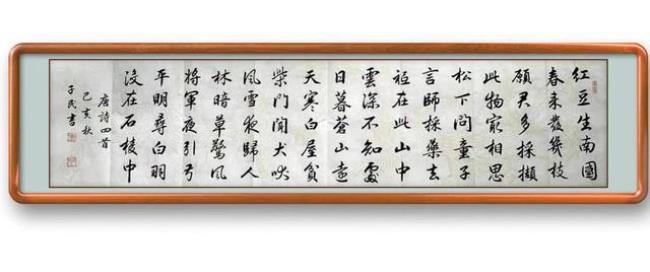 紅豆生南國
春來發幾枝
願君多採擷
此物冣相思
松下問童子
言師採藥去
祗在此山中
雲深不知處
日暮蒼山遠
天寒白屋貧
柴門聞犬吠
風雪夜歸人
林暗草驚風
將軍夜引弓
平明尋白羽
沒在石棱中
唐詩四首
己亥秋
子民書